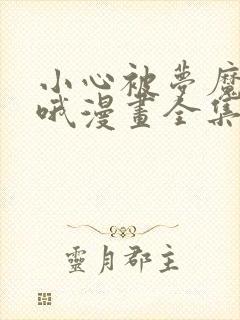 小心被夢魔
哦漫畫全集
靈月郡主